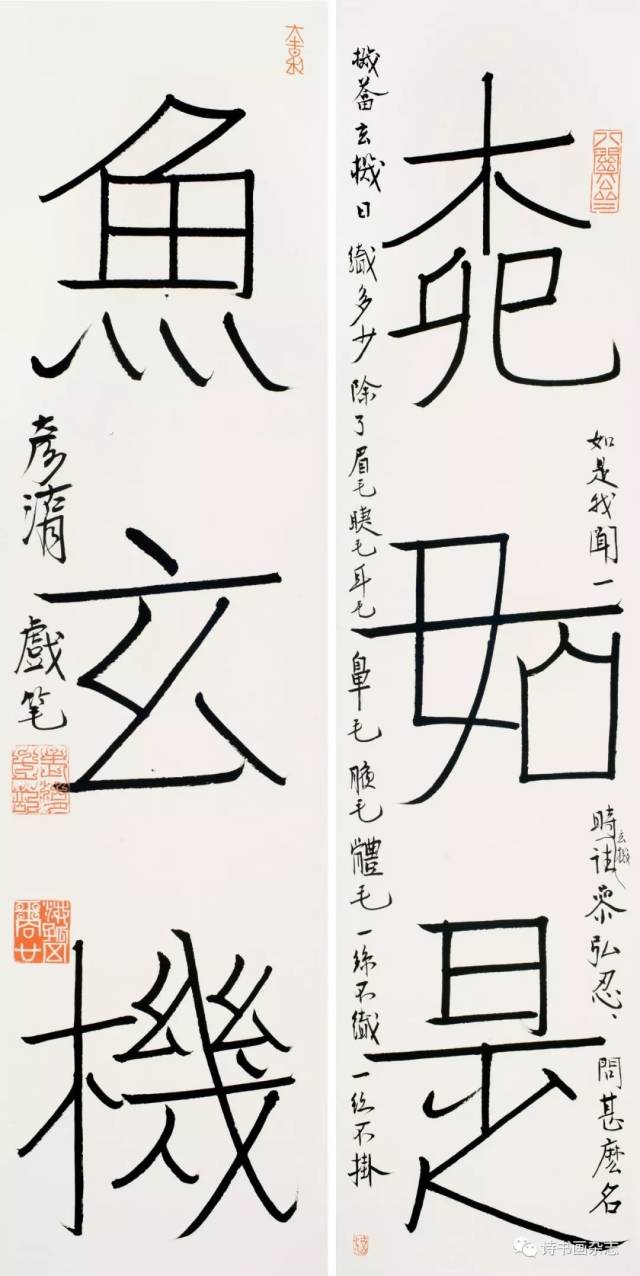 桺如是
如是我聞一時玄機往參弘忍、問甚麽名
機荅玄機日織多少除了眉毛睫毛耳毛鼻毛腋毛體毛一絲不織一丝不掛
魚玄機
戲笔
诗书画杂志